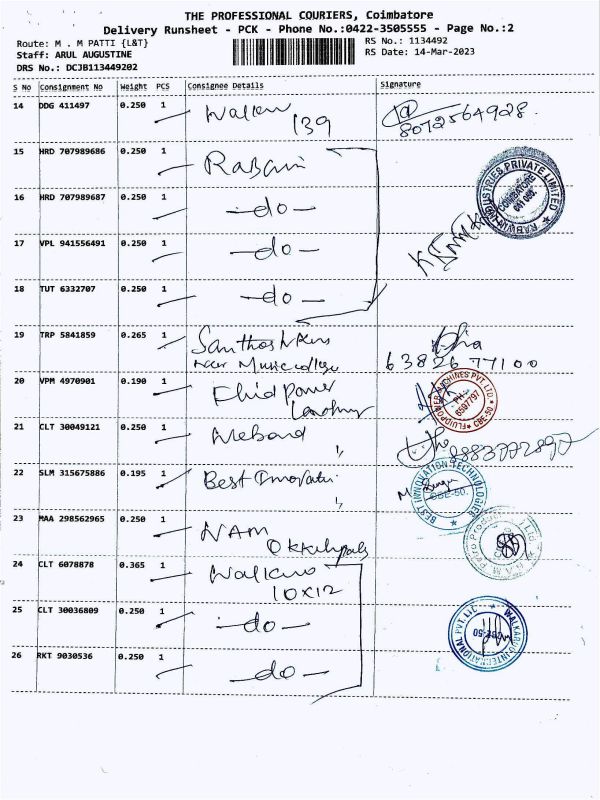 THE PROFESSIONAL COURIERS, Coimbatore
Delivery Runsheet - PCK - Phone No.:0422-3505555 - Page No.:2
Route: M . M PATTI {L&T}
RS No.: 1134492
Staff: ARUL AUGUSTINE
RS Date: 14-Mar-2023
DRS No.: DCJB113449202
S No Consignment No Weight PCS Consignee Details Signature
14 DDG 411497 0.250 1
139
8072564928
15 HRD 707989686 0.250 1
16 HRD 707989687 0.250 1 -do-
COIMBATORE
641 062.
INDUSTRIES PRIVATE LIMITED
17 VPL 941556491 0.250 1 -do-
18 TUT 6332707 0.250 1 -do-
19 TRP 5841859 0.265 1 Santhosh
Near Music college
6382677100
20 VPM 4970901 0.190 1 Fluid Power
FLUIDPOWER MACHINES PVT. LTD.
PH:
6597797
CBE-50
21 CLT 30049121 0.250 1
22 SLM 315675886 0.195 1 Best
BEST INNOVATION TECHNOLOGIES
CBE-50.
23 MAA 298562965 0.250 1 NAM
24 CLT 6078878 0.365 1
10x12
25 CLT 30036809 0.250 1 -do-
WALKAROO INTERNATIONAL PVT. LTD.
CBE-50
26 RKT 9030536 0.250 1 -do-